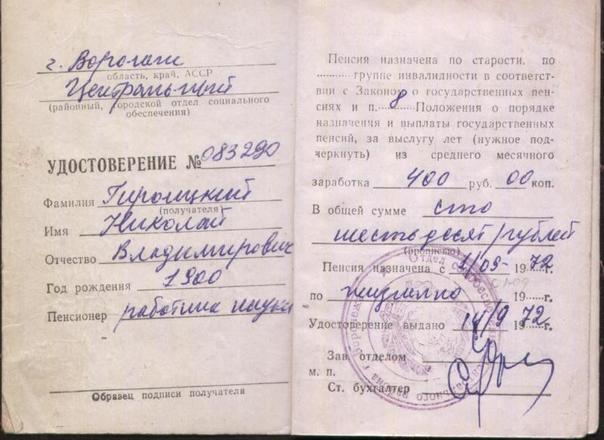 г. Воронеж
область, край, АССР
Центральный
(районный, городской отдел социального
обеспечения)
УДОСТОВЕРЕНИЕ № 083290
Фамилия
(получателя)
Имя Николай
Отчество Владимирович
Год рождения 1900
Пенсионер работник науки
Образец подписи получателя
Пенсия назначена по старости, по
группе инвалидности в соответст-
вии с Законом о государственных пен-
сиях и п. 8 Положения о порядке
назначения и выплаты государственных
пенсий, за выслугу лет (нужное под-
черкнуть) из среднего месячного
заработка 400 руб. 00 коп.
В общей сумме сто
шестьдесят рублей
(прописью)
Пенсия назначена с 1/09- 1972 г.
по пожизненно 19 г.
Удостоверение выдано 14/9 1972 г.
Зав. отделом
м. п.
Ст. бухгалтер